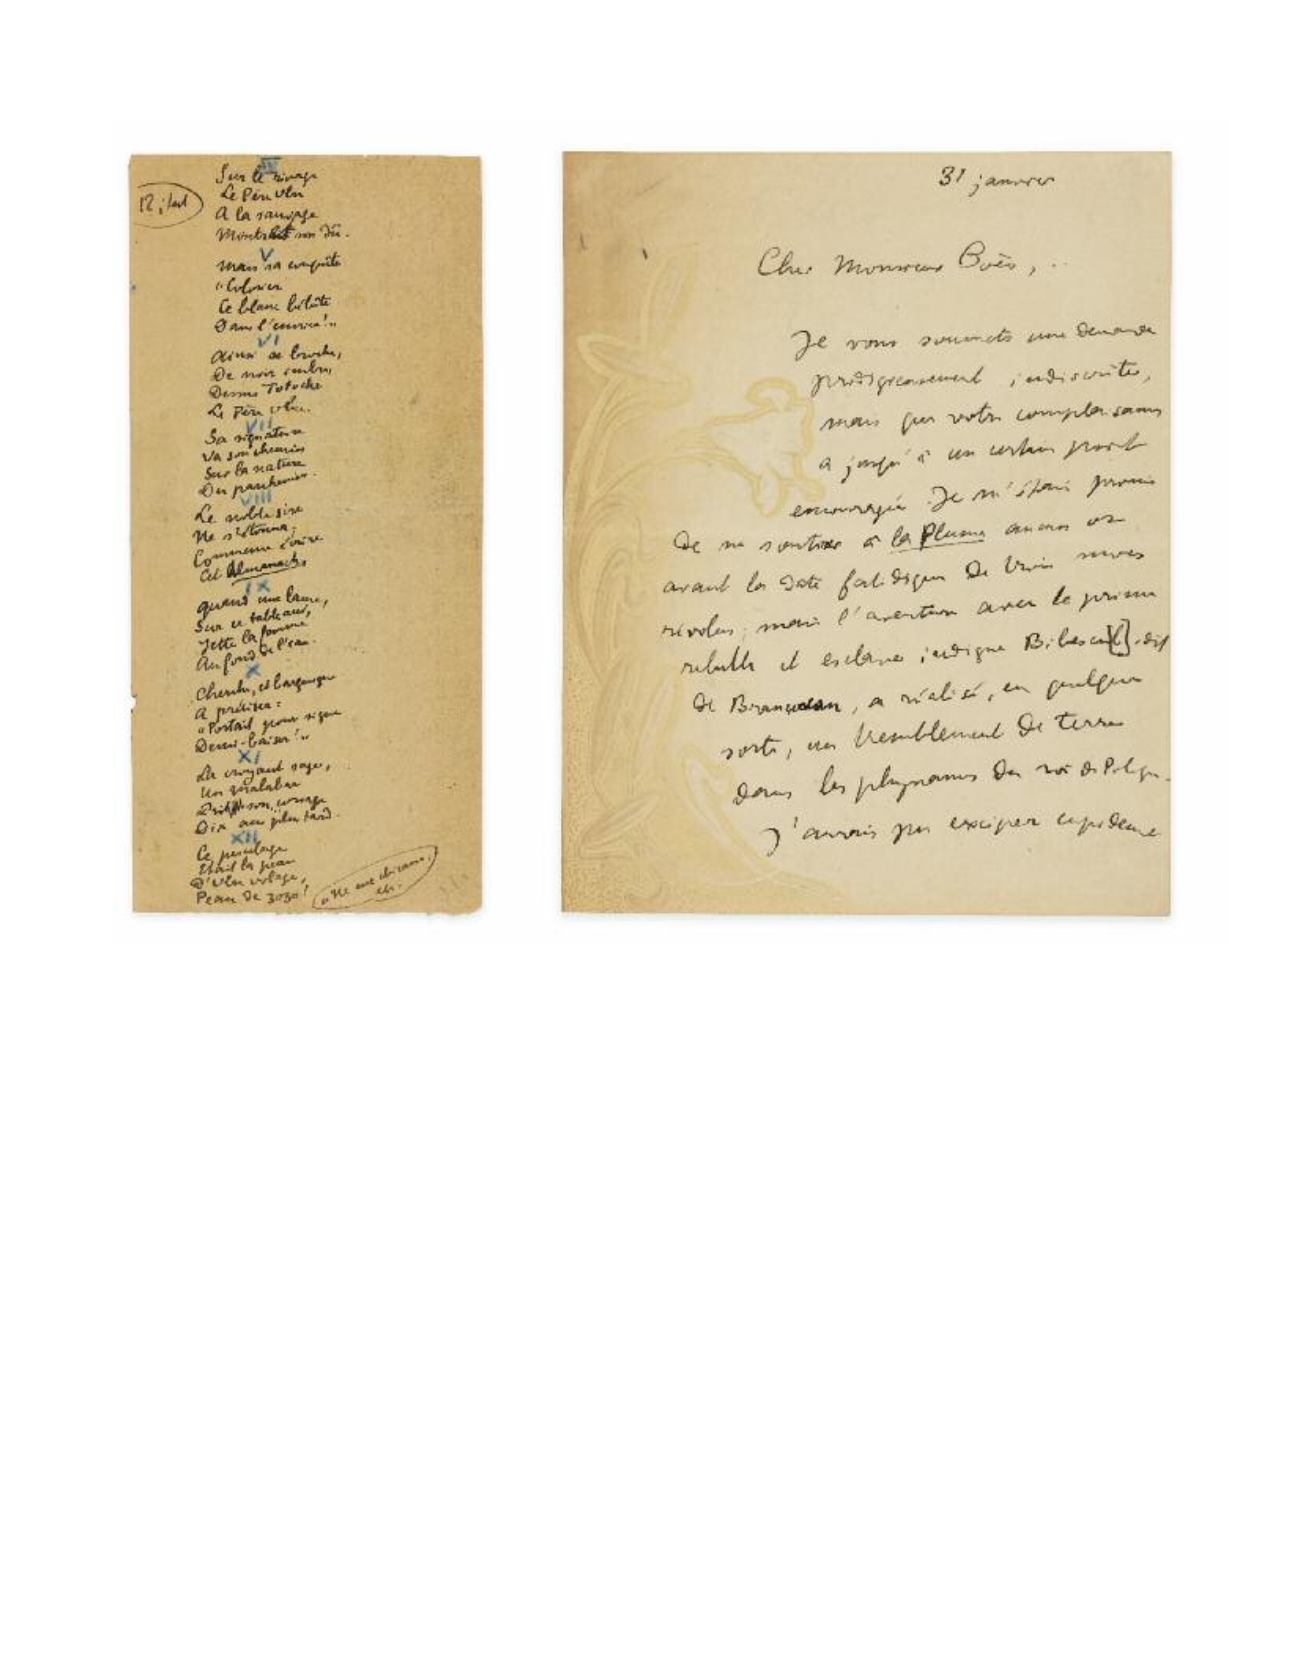 IV
Sur le rivage
Le Père Ubu
A la sauvage
Montrait son
V
Mais sa conquête
"Colorier
Ce blanc bébête
Dans l'encrier!"
VI
Ainsi se broche,
De noir imbu,
Dessus Totoche
Le Père Ubu.
VII
Sa signature
Va son chemin
Sur la nature
Du parchemin.
VIII
Le noble sire
Ne s'étonna:
Comment écrire
Cet Almanach
IX
Quand une lame,
Sur ce tableau,
Jette la femme
Au fond de l'eau.
X
Cherche, et
A préciser:
"Portait pour signe
Demi-baiser!"
XI
La croyant sage,
Un
son corsage
Dix ans plus tard.
XII
Ce pucelage
Etait la peau
D'Ubu volage,
Peau de zozo!
"Ne
31 janvier
Cher Monsieur Boès,..
Je vous soumets une demande
prodigieusement indiscrète,
mais que votre complaisance
a jusqu'à un certain point
encouragée. Je m'étais promis
de ne soutirer à la Plume aucun or
avant la date fatidique de trois mois
révolus; mais l'aventure avec le prince
rebelle et esclave indigne Bibesco[ ], dit
de Brancovan, a réalisé, en quelque
sorte, un tremblement de terre
dans les phynances du roi de Pologne.
J'aurais pu exciper